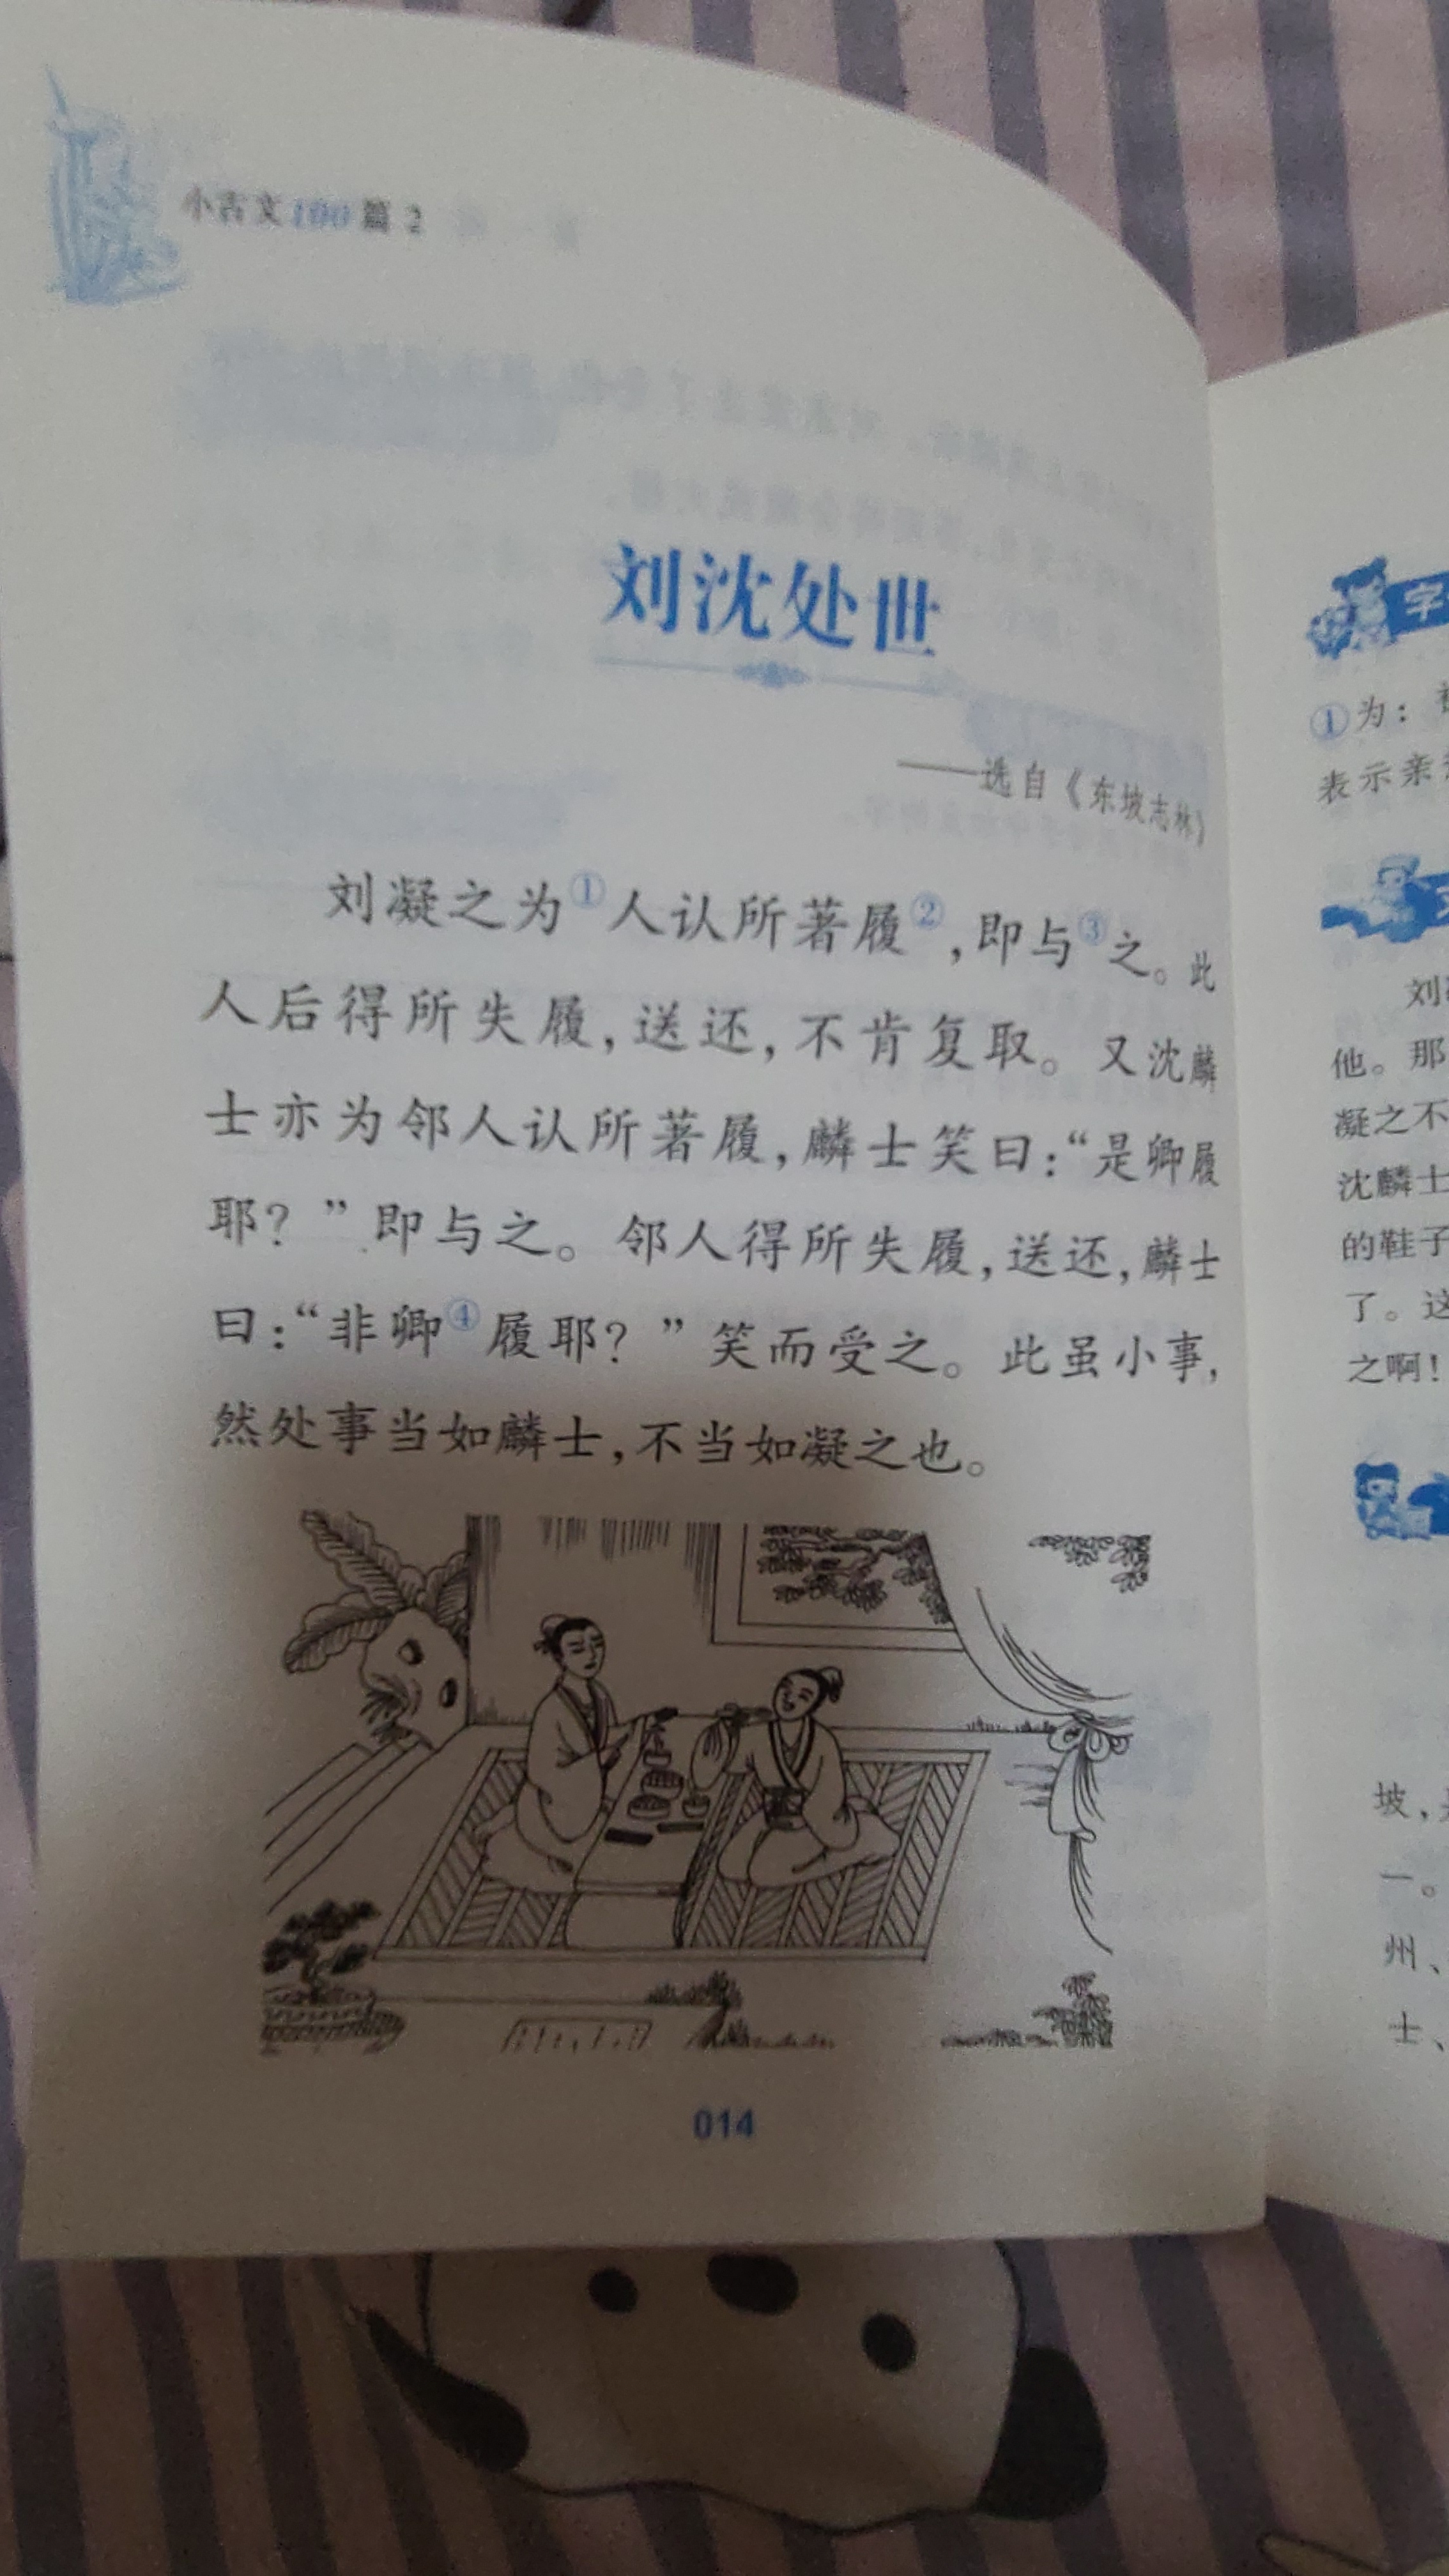 小古文100篇 2
刘沈处世
——选自《东坡志林》
刘凝之为①人认所著履②,即与③之。此
人后得所失履,送还,不肯复取。又沈麟
士亦为邻人认所著履,麟士笑曰:“是卿履
耶?”即与之。邻人得所失履,送还,麟士
曰:“非卿④履耶?”笑而受之。此虽小事,
然处事当如麟士,不当如凝之也。
014
字
①为:
表示亲
刘
他。那
凝之不
沈麟士
的鞋子
了。这
之啊!
坡,
一。
州、
士、